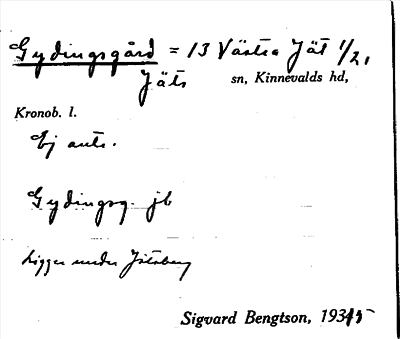 Gydingsgård = 13 Västra Jät 1/2,
Jäts sn, Kinnevalds hd,
Kronob. l.
Ej ants.
Gydingsg. jb
Ligger under Jätsberg
Sigvard Bengtson, 1935